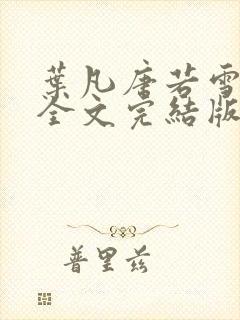 葉凡唐若雪
全文完結版
普里兹